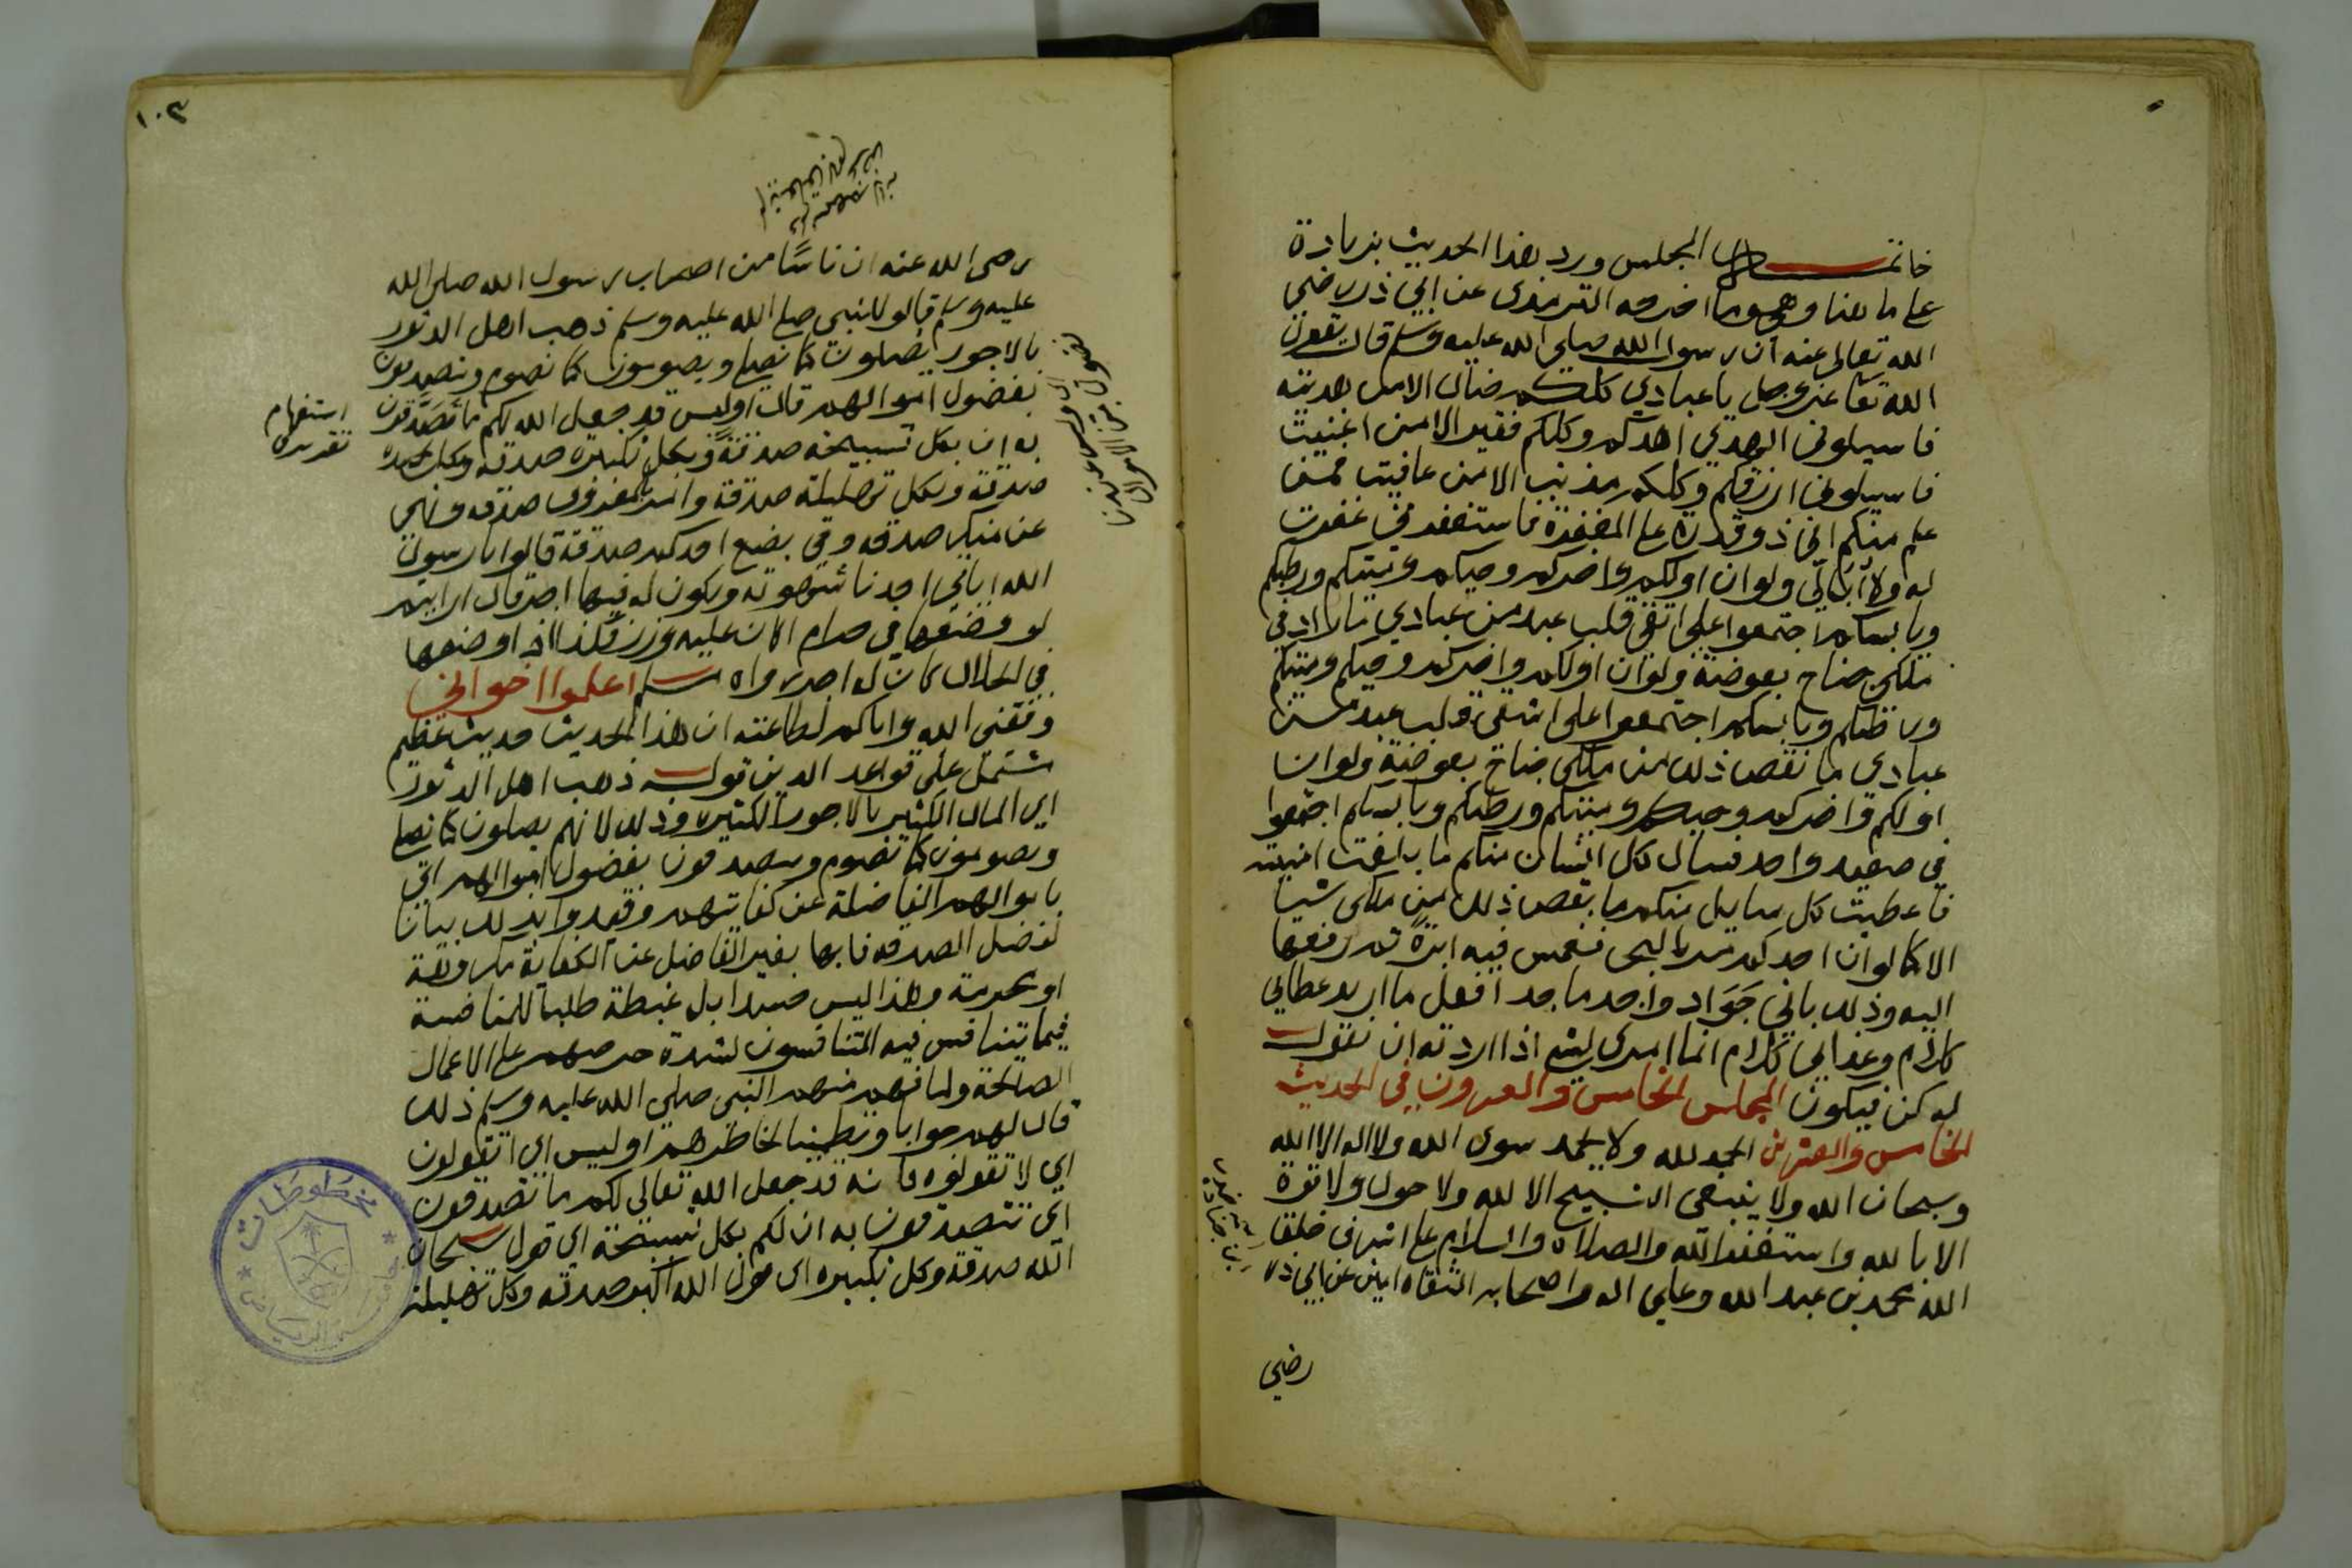 خاتمة المجلس ورد هذا الحديث بزيادة
على ما هنا وهي ما اخرجه الترمذى عن ابي ذر رضي
الله تعالى عنه ان رسول الله صلى الله عليه وسلم قال يقول
الله تعا عز وجل يا عبادي كلكم ضال الا من هديته
فاسيلونى الهدي اهدكم وكلكم فقير الا من اغنيت
فاسيلونى ارزقكم وكلكم مذنب الا من عافيت فمن
علم منكم انى ذو قدرة على المغفرة فاستغفرني غفرت
له ولا أبالي ولو ان اولكم واخركم وحيكم وميتكم ورطبكم
ويابسكم اجتمعوا على اتقى قلب عبد من عبادي ما زاد في
ملكي جناح بعوضة ولو ان اولكم واخركم وحيكم وميتكم
ورطبكم ويابسكم اجتمعوا على اشقى قلب عبد من
عبادي ما نقص ذلك من ملكي جناح بعوضة ولو ان
اولكم واخركم وحيكم وميتكم ورطبكم ويابسكم اجتمعوا
في صعيد واحد فسال كل انسان منكم ما بلغت امنيته
فاعطيت كل سايل منكم ما نقص ذلك من ملكي شيا
الا كما لو ان احدكم مر بالبحر فغمس فيه ابرة ثم رفعها
اليه وذلك باني جَوَاد واجد ماجد افعل ما اريد عطائي
كلام وعذابي كلام انما امرى لشي اذا اردته ان نقول
له كن فيكون المجلس الخامس والعشرون في الحديث
الخامس والعشرين الحمد لله ولا يحمد سوى الله ولا اله الا الله
وسبحان الله ولا ينبغي التسبيح الا لله ولا حول ولا قوة
الا بالله واستغفر الله والصلاة والسلام على اشرف خلق
الله محمد بن عبد الله وعلى اله واصحابه الثقاه امين عن ابي ذر
رضي
١٠٣
رضى الله عنه ان ناسًا من اصحاب رسول الله صلى الله
عليه وسلم قالو للنبي صلى الله عليه وسلم ذهب اهل الدثور
بالاجور يصلون كما نصلي ويصومون كما نصوم ويتصدقون
بفضول اموالهم قال اوليس قد جعل الله لكم ما تصَدَّقون
استفهام
تقريرى
به ان بكل تسبيحة صدقةً وبكل تكبيرة صدقه وبكل تحميده
صدقة وبكل تهليلة صدقة وامر بالمعروف صدقه ونهي
عن منكر صدقه وفي بضع احدكم صدقة قالوا يا رسول
الله اياتي احدنا شهوته ويكون له فيها اجر قال ارايتم
لو وضعها في حرام اكان عليه وزر فكذا اذا وضعها
في الحلال كان له اجر رواه مسلم اعلموا اخواني
وفقني الله واياكم لطاعته ان هذا الحديث حديث عظيم
مشتمل على قواعد الدين قوله ذهب اهل الدثور
اي المال الكثير بالاجور الكثيرة وذلك لانهم يصلون كما نصلي
ويصومون كما نصوم ويتصدقون بفضول اموالهم اي
باموالهم الفاضلة عن كفايتهم وقيدوا بذلك بيانا
لفضل الصدقه فانها بغير الفاضل عن الكفاية مكروهة
او محرمة وهذا ليس حسدا بل غبطة طلبا للمنافسة
فيما يتنافس فيه المتنافسون لشدة حرصهم على الاعمال
الصالحة ولما فهم منهم النبي صلى الله عليه وسلم ذلك
قال لهم جوابا وتطمينا لخاطرهم اوليس اي اتقولون
اي لا تقولوه فانه قد جعل الله تعالى لكم ما تصدقون
اي تتصدقون به ان لكم بكل تسبيحة اي قول سبحان
الله صدقة وكل تكبيره اى قول الله اكبر صدقه وكل تهليلة
مخطوطات